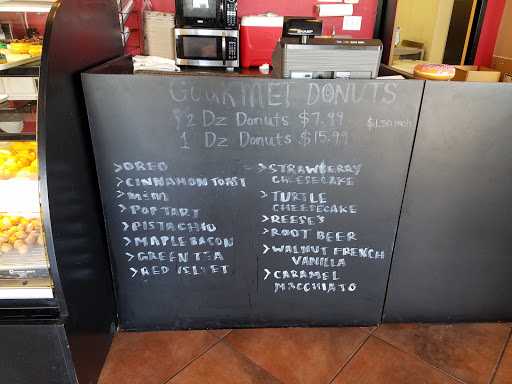 SHARP
GOURMET DONUTS
1/2 Dz Donuts $7.99
$1.50 each
1 Dz Donuts $15.99
>OREO
>CINNAMON TOAST
>M&M
>POP TART
>PISTACHIO
>MAPLE BACON
>GREEN TEA
>RED VELVET
>STRAWBERRY
CHEESECAKE
>TURTLE
CHEESECAKE
>REESE'S
>ROOT BEER
>WALNUT FRENCH
VANILLA
>CARAMEL
MACCHIATO